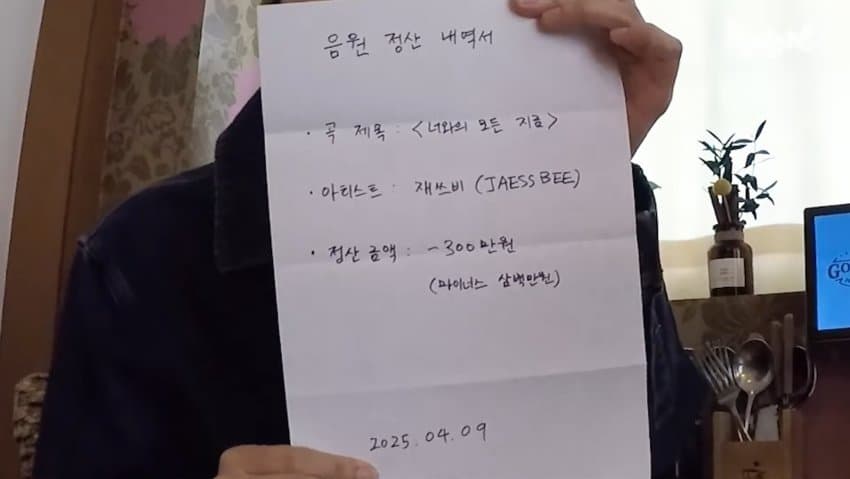 음원 정산 내역서
· 곡 제목 : <너와의 모든 지금>
· 아티스트 : 재쓰비 (JAESSBEE)
· 정산 금액 : -300만원
(마이너스 삼백만원)
2025.04.09